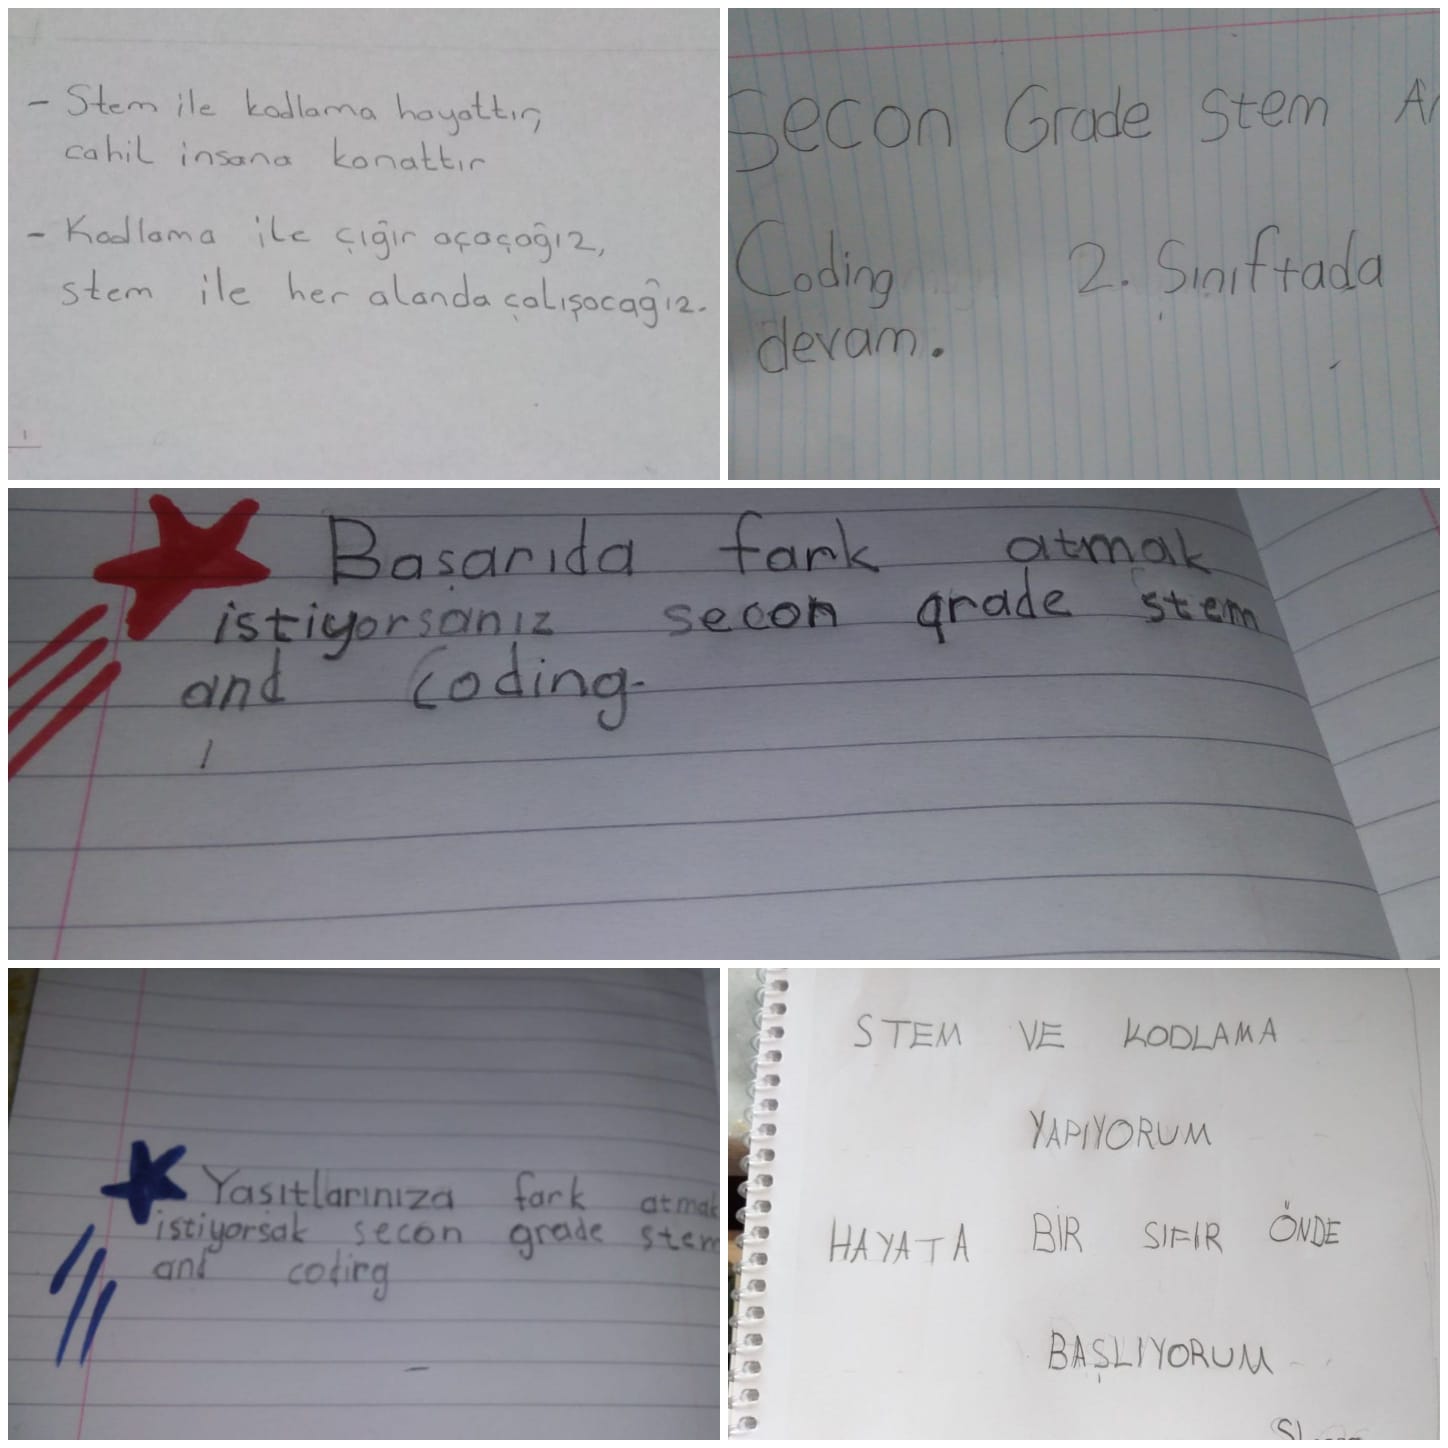 - Stem ile kodlama hayattır,
cahil insana kanattır
- Kodlama ile çığır açaçağız,
stem ile her alanda çalışacağız.
Secon Grade Stem
Coding 2. Sınıftada
devam.
Başarıda fark atmak
istiyorsanız secon grade stem
and Coding.
Yasıtlarınıza fark atmak
istiyorsak secon grade stem
and coding
STEM VE KODLAMA
YAPIYORUM
HAYATA BİR SIFIR ÖNDE
BAŞLIYORUM